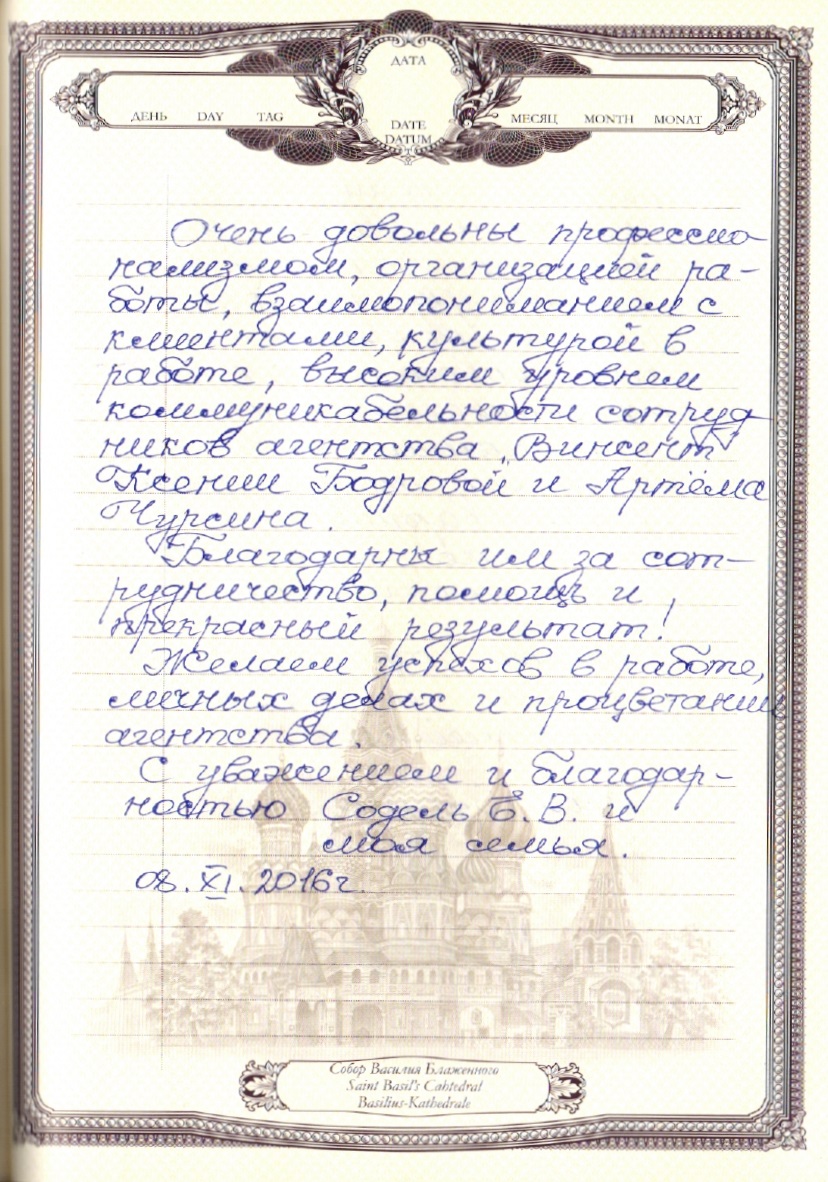 ДАТА
ДЕНЬ DAY TAG
МЕСЯЦ MONTH MONAT
DATE
DATUM
Очень довольны профессио-
нализмом, организацией ра-
боты, взаимопониманием с
клиентами, культурой в
работе, высоким уровнем
коммуникабельности сотруд
ников агентства „Винсент"
Ксении Бодровой и Артёма
Чурсина.
Благодарны им за сот-
рудничество, помощь и
прекрасный результат!
Желаем успехов в работе,
личных делах и процветании
агентства.
С уважением и благодар-
ностью Содель Е. В. и
моя семья.
08. XI. 2016г.
Собор Василия Блаженного
Saint Basil's Cahtedral
Basilius-Kathedrale